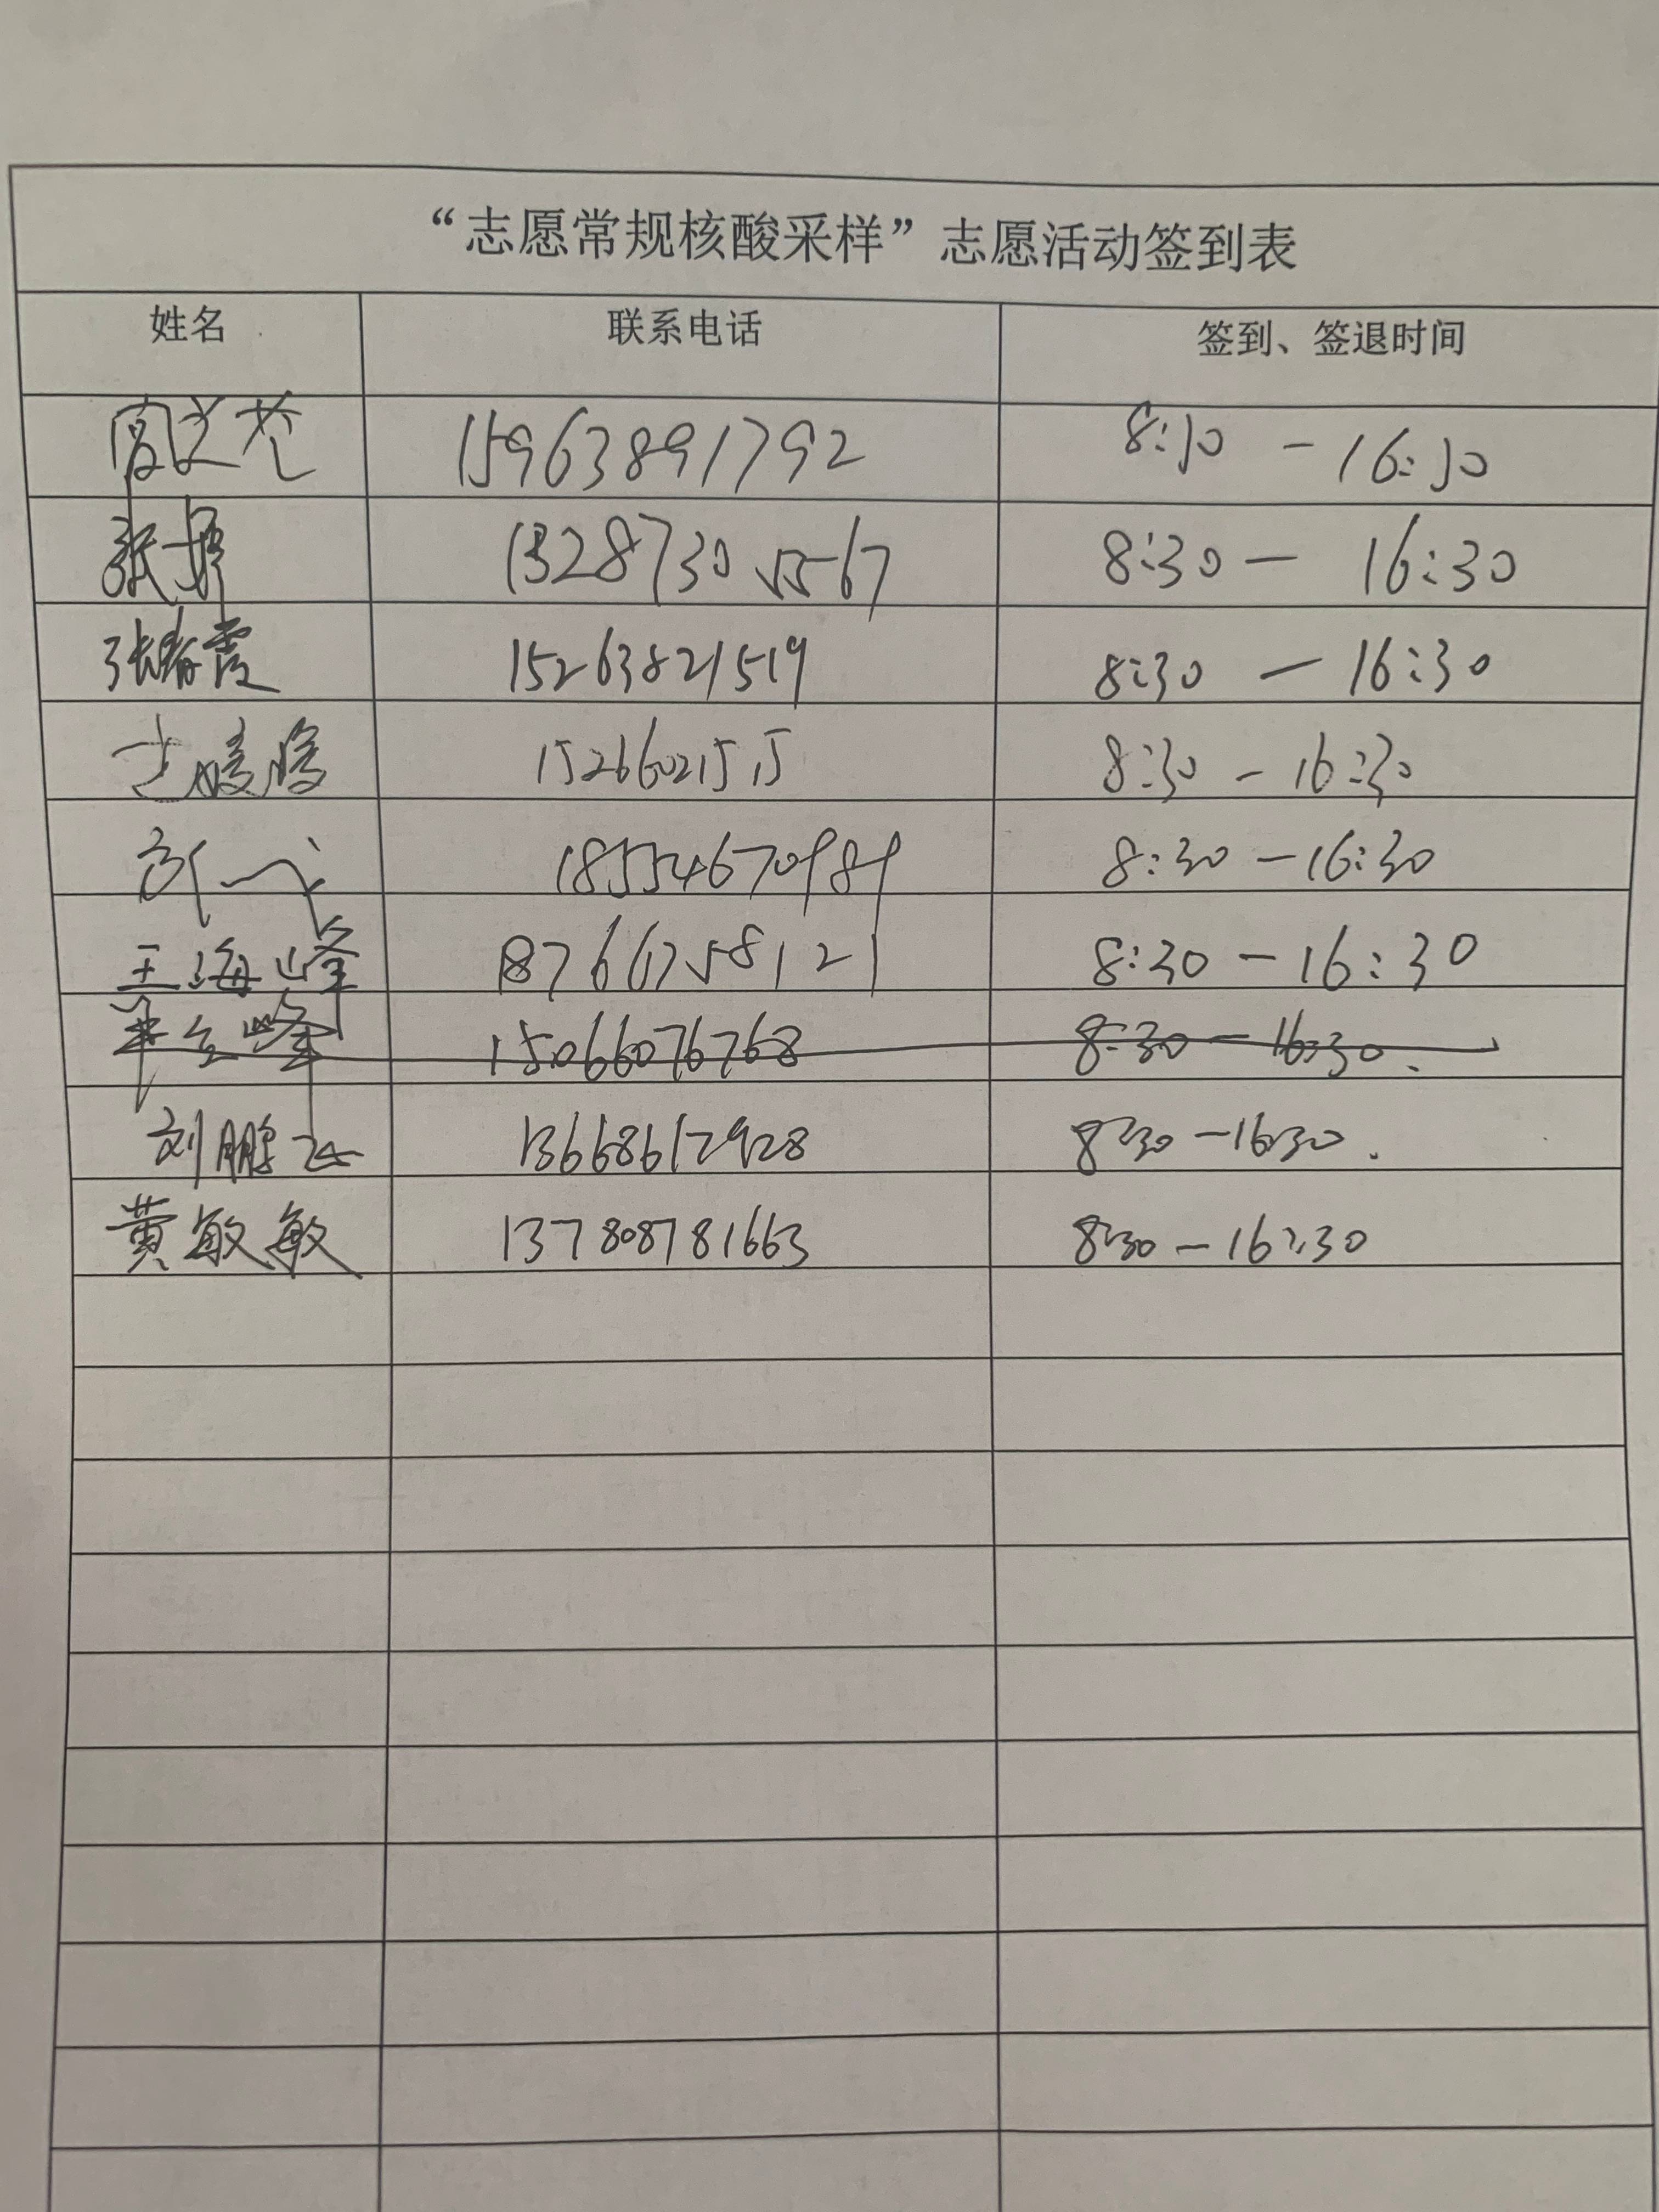 “志愿常规核酸采样”志愿活动签到表
姓名 联系电话 签到、签退时间
15963891792 8:30 - 16:30
张婷 15287305567 8:30 - 16:30
张春霞 15263821519 8:30 - 16:30
15266021515 8:30 - 16:30
18554670989 8:30 - 16:30
王海峰 18766758121 8:30 - 16:30
15066076768 8:30 - 16:30.
刘鹏飞 13668617928 8:30 - 16:30.
黄敏敏 137808781663 8:30 - 16:30